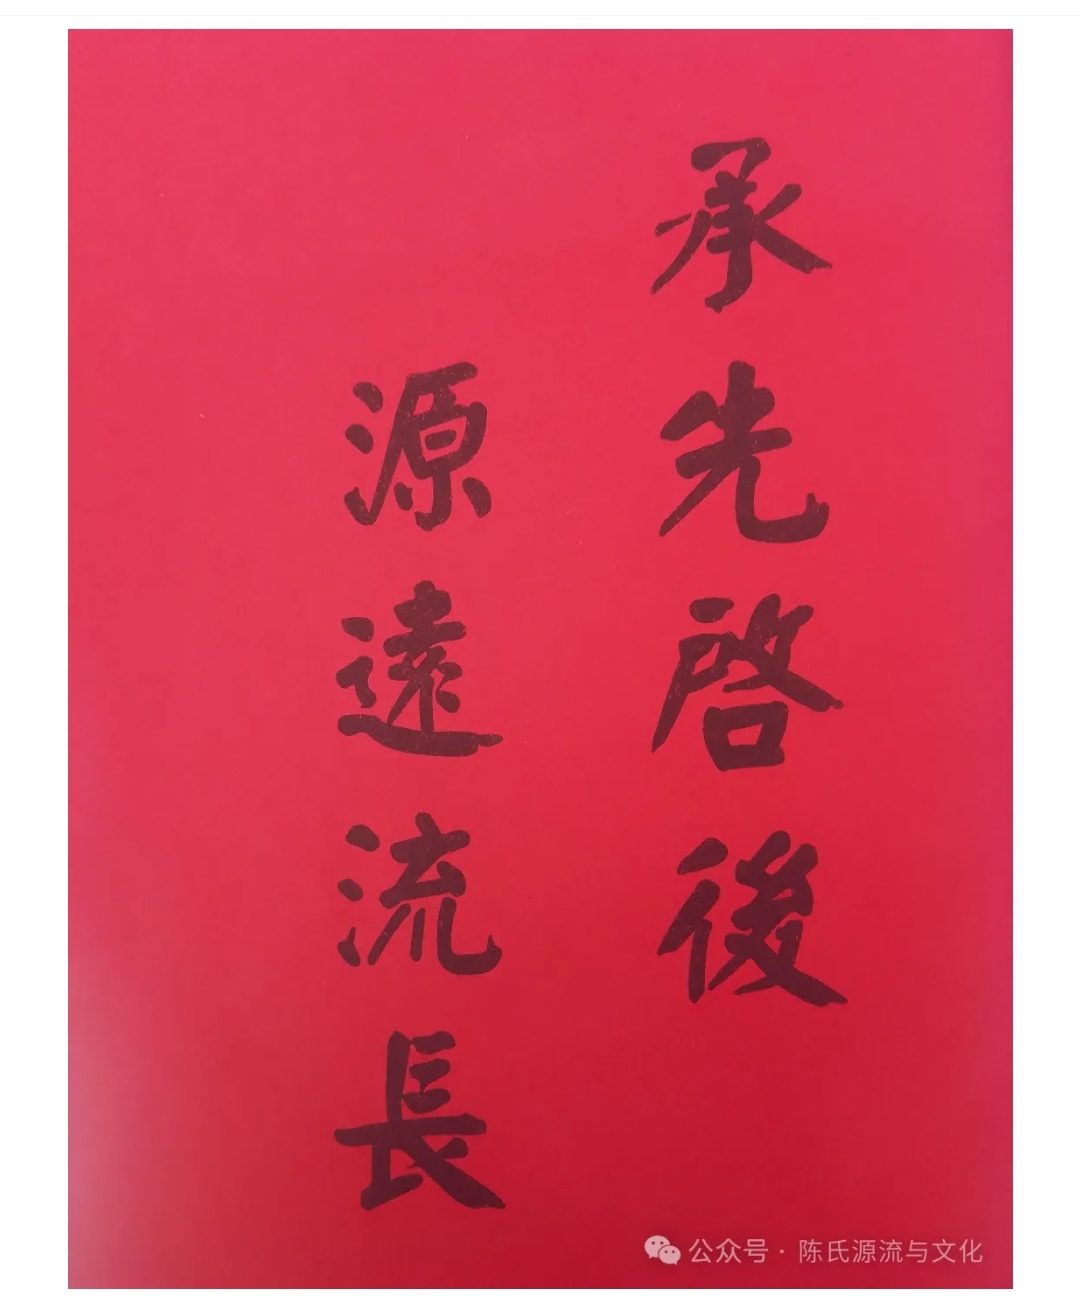 承先啓後
源遠流長
公众号 · 陈氏源流与文化